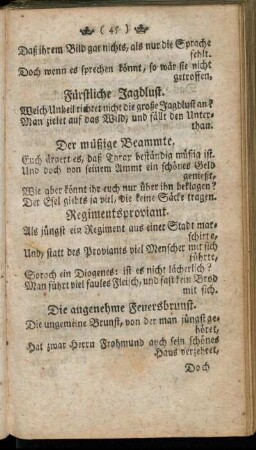 ( 45 )
Daß ihrem Bild gar nichts, als nur die Sprache
fehlt.
Doch wenn es sprechen könnt, so wär sie nicht
getroffen.
Fürstliche Jagdlust.
Welch Unheil richtet nicht die große Jagdlust an?
Man zielet auf das Wild, und fällt den Unter-
than.
Der müßige Beammte.
Euch ärgert es, daß Thrax beständig müßig ist.
Und doch von seinem Ammt ein schönes Geld
genießt,
Wie aber könnt ihr euch nur über ihn beklagen?
Der Esel giebts ja viel, die keine Säcke tragen.
Regimentsproviant.
Als jüngst ein Regiment aus einer Stadt mar-
schirte,
Und, statt des Proviants viel Menscher mit sich
führte,
Sprach ein Diogenes: ist es nicht lächerlich?
Man führt viel faules Fleisch, und fast kein Brod
mit sich.
Die angenehme Feuersbrunst.
Die ungemeine Brunst, von der man jüngst ge-
höret,
Hat zwar Herrn Frohmund auch sein schönes
Haus verzehret,
Doch